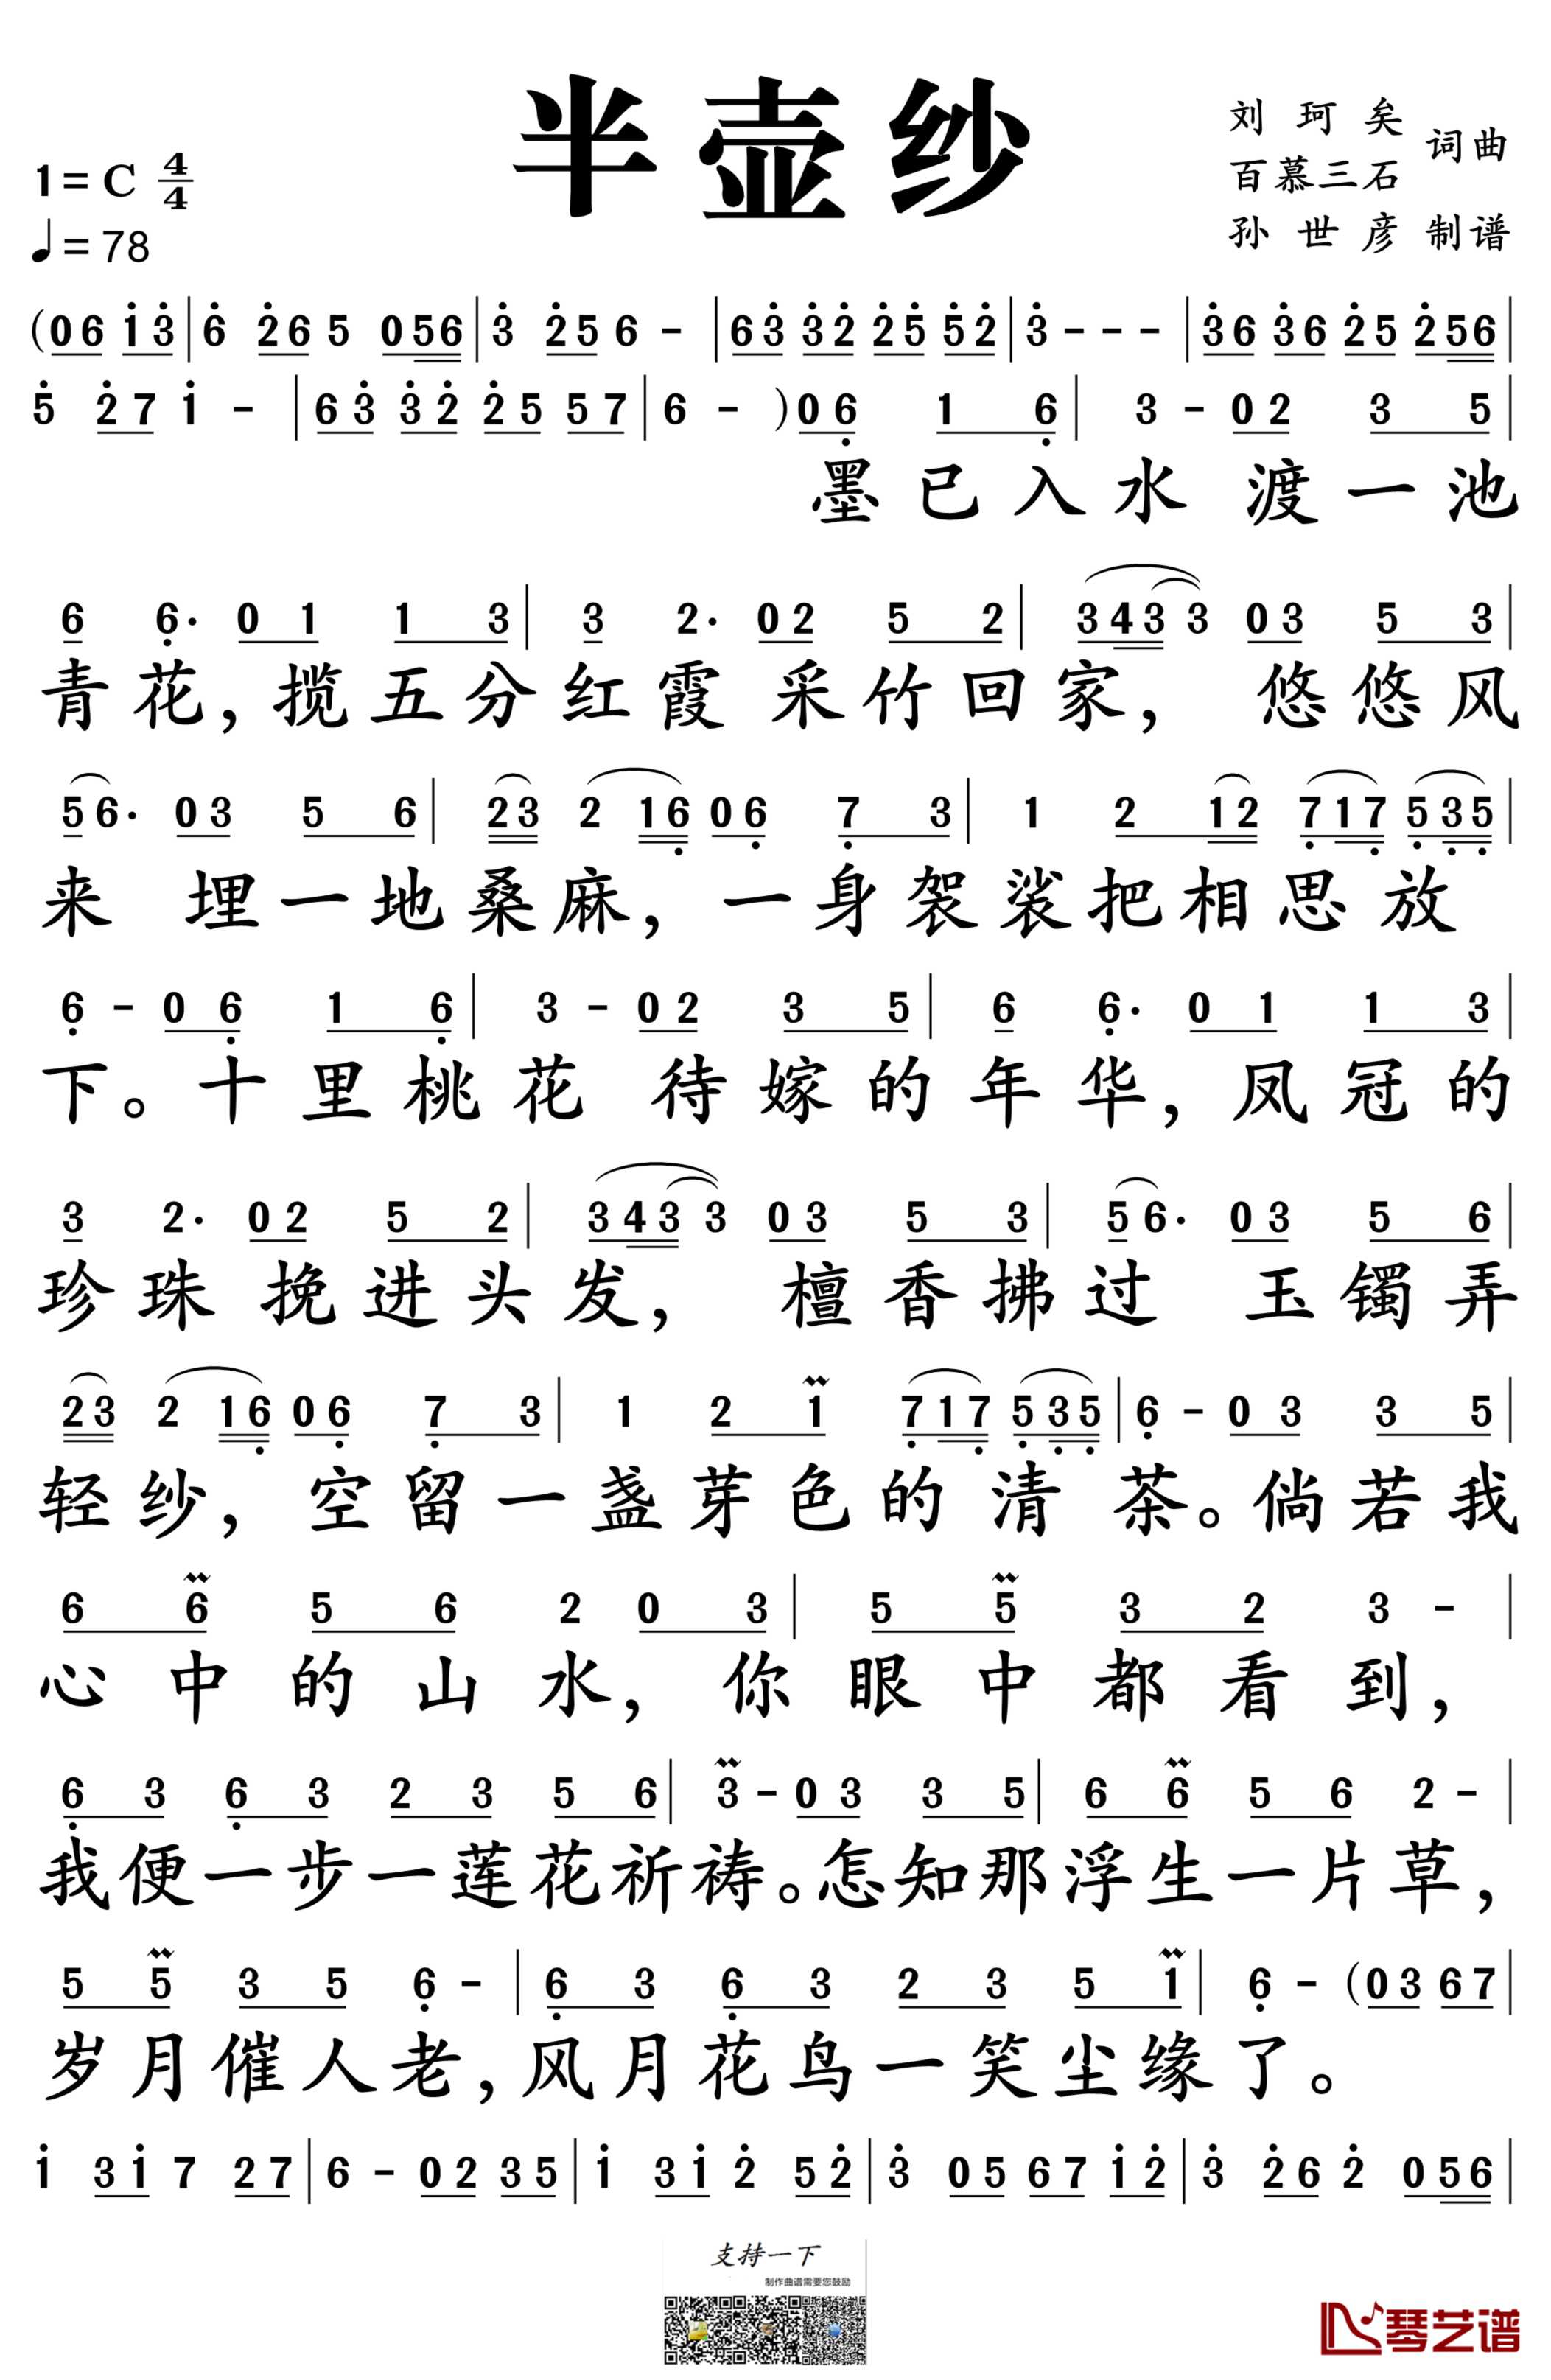 半壶纱
刘珂矣
百慕三石
词曲
孙世彦 制谱
1=C 4/4
♩=78
(06 1̇3̇|6̇ 2̇6 5 056|3̇ 2̇5 6 -|63̇ 3̇2̇ 2̇5̇ 5̇2̇|3̇ - - -|3̇6 3̇6 2̇5 2̇56|
5̇ 2̇7 1̇ -|63̇ 3̇2̇ 2̇5 57|6 - )06̣ 1 6̣|3 - 02 3 5|
墨已入水 渡一池
6 6̣· 0 1 1 3|3 2· 02 5 2|3433 03 5 3|
青花,揽五分红霞 采竹回家, 悠悠风
56· 03 5 6|23 2 16̣ 06̣ 7̣ 3|1 2 12 7̣17̣ 5̣3̣5̣|
来 埋一地桑麻,一身袈裟把相思放
6̣ - 0 6̣ 1 6̣|3 - 02 3 5|6 6̣· 0 1 1 3|
下。十里桃花 待嫁的年华,凤冠的
3 2· 02 5 2|3433 03 5 3|56· 03 5 6|
珍珠 挽进头发, 檀香拂过 玉镯弄
23 2 16̣ 06̣ 7̣ 3|1 2 1 7̣17̣ 5̣3̣5̣|6̣ - 0 3 3 5|
轻纱, 空留一盏芽色的清茶。倘若我
6 6 5 6 2 0 3|5 5 3 2 3 -|
心中的山水, 你眼中都看到,
6̣ 3 6̣ 3 2 3 5 6|3 - 03 3 5|6 6 5 6 2 -|
我便一步一莲花祈祷。怎知那浮生一片草,
5 5 3 5 6̣ -|6̣ 3 6̣ 3 2 3 5 1|6̣ - (03 67|
岁月催人老,风月花鸟一笑尘缘了。
1̇ 31̇ 7 27|6 - 02 35|1̇ 31̇ 2̇ 52̇|3̇ 05 67 1̇2̇|3̇ 2̇6 2̇ 056|
支持一下
制作曲谱需要您鼓励
琴艺谱